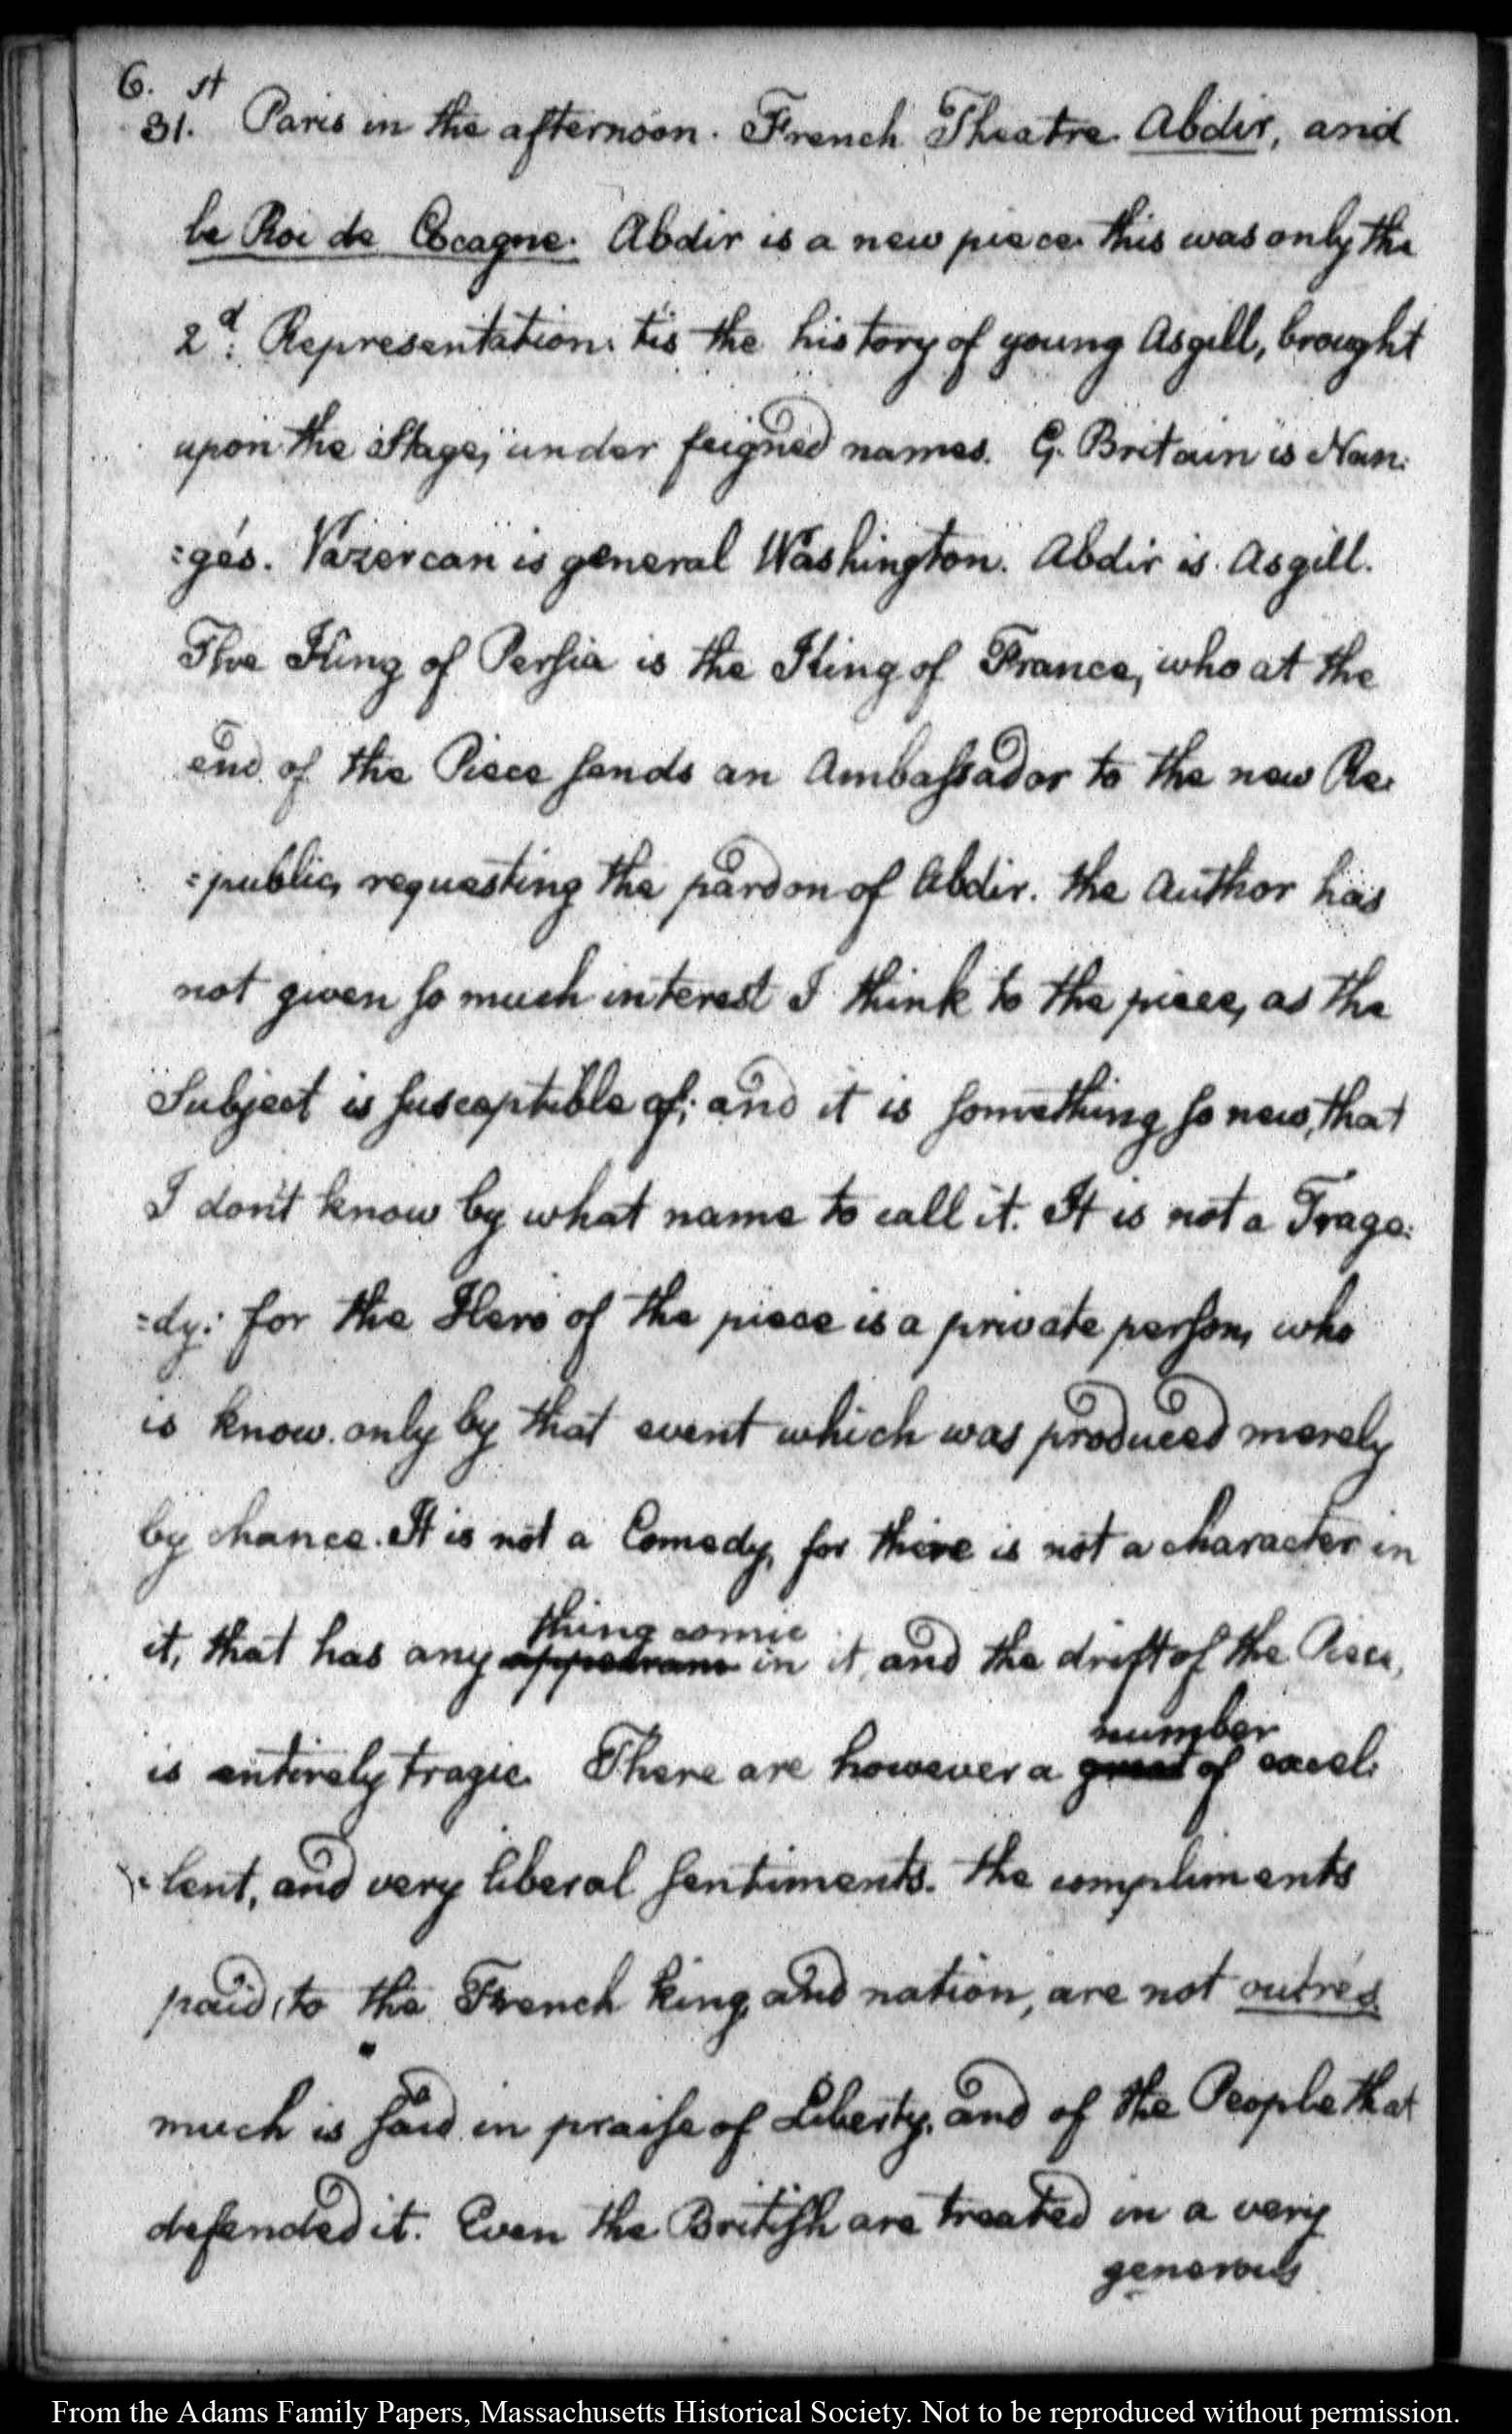 6.
31.st Paris in the afternoon. French Theatre Abdir, and
le Roi de Cocagne. Abdir is a new piece. this was only the
2d: Representation. tis the history of young Asgill, brought
upon the Stage, under feigned names. G. Britain is Nan:
:gés. Vazercan is general Washington. Abdir is Asgill.
The King of Persia is the King of France, who at the
end of the Piece sends an Ambassador to the new Re:
:public, requesting the pardon of Abdir. the Author has
not given so much interest I think to the piece, as the
Subject is susceptible of; and it is something so new, that
I don't know by what name to call it. It is not a Trage:
:dy: for the Hero of the piece is a private person, who
is know only by that event which was produced merely
by chance. It is not a Comedy, for there is not a character in
thing comic
it, that has any in it, and the drift of the Piece,
number
is entirely tragic. There are however a great of excel:
:lent, and very liberal sentiments. the compliments
paid, to the French king, and nation, are not outrés
much is said in praise of Liberty, and of the People that
defended it. Even the British are treated in a very
generous
From the Adams Family Papers, Massachusetts Historical Society. Not to be reproduced without permission.